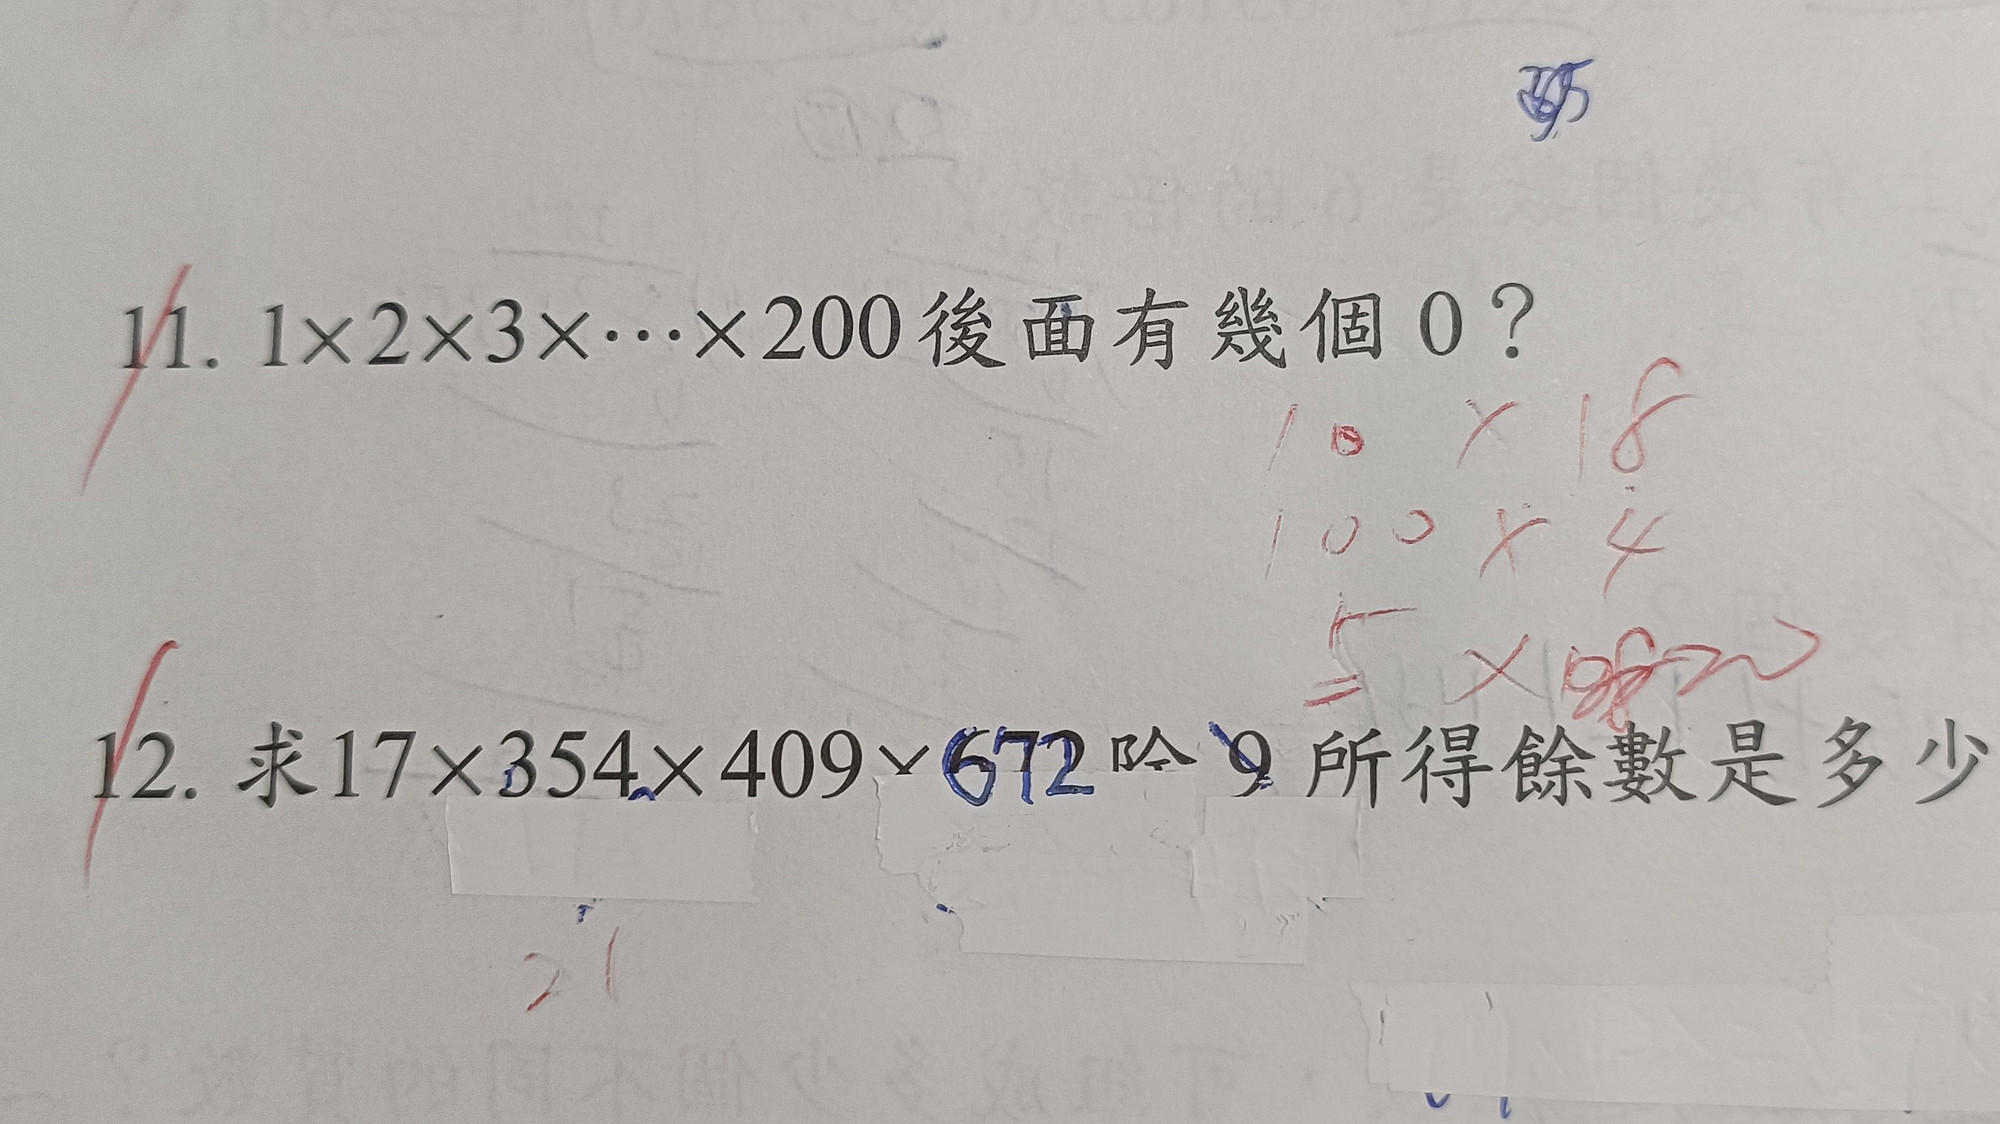 11. 1×2×3×⋯×200後面有幾個 0？
10 × 18
100 × 4
= 5 ×
12. 求17×354×409×672 除 9 所得餘數是多少
21